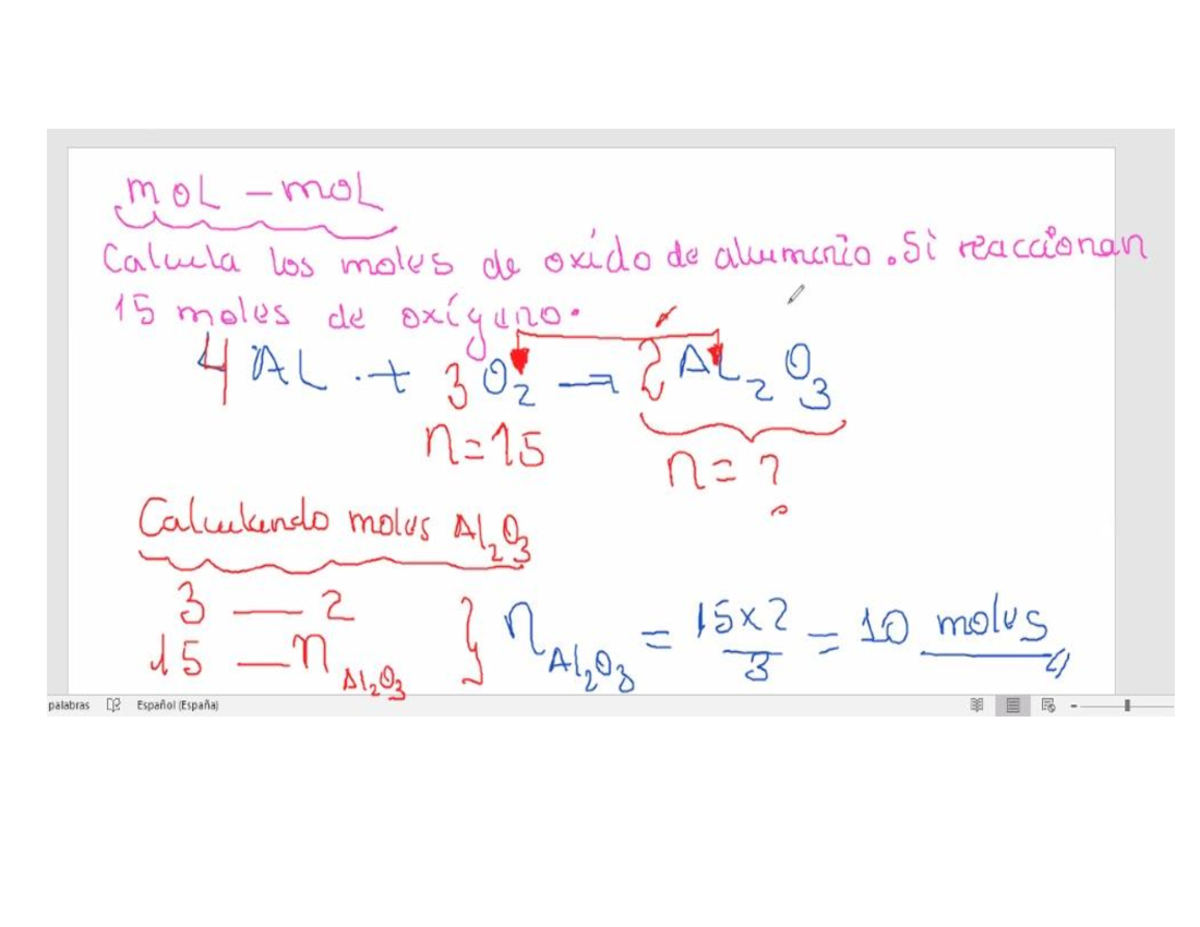 moL - moL
Calcula los moles de oxído de aluminio. Si reaccionan
15 moles de oxígeno.
4 AL + 3 O₂ → 2 AL₂O₃
n=15 n=?
Calculando moles Al₂O₃
3 — 2
15 — n Al₂O₃ } n Al₂O₃ = 15x2/3 = 10 moles
palabras Español (España)